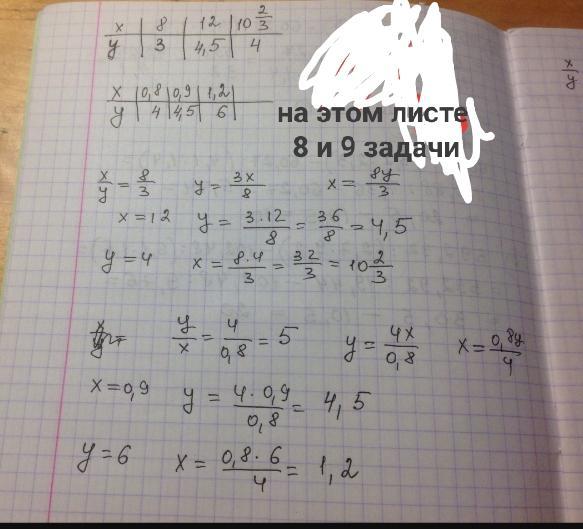 x | 8 | 12 | 10 2/3
y | 3 | 4,5 | 4
x | 0,8 | 0,9 | 1,2
y | 4 | 4,5 | 6
на этом листе
8 и 9 задачи
x/y = 8/3 y = 3x/8 x = 8y/3
x = 12 y = 3·12/8 = 36/8 = 4,5
y = 4 x = 8·4/3 = 32/3 = 10 2/3
y/x = 4/0,8 = 5 y = 4x/0,8 x = 0,8y/4
x = 0,9 y = 4·0,9/0,8 = 4,5
y = 6 x = 0,8·6/4 = 1,2
x
y